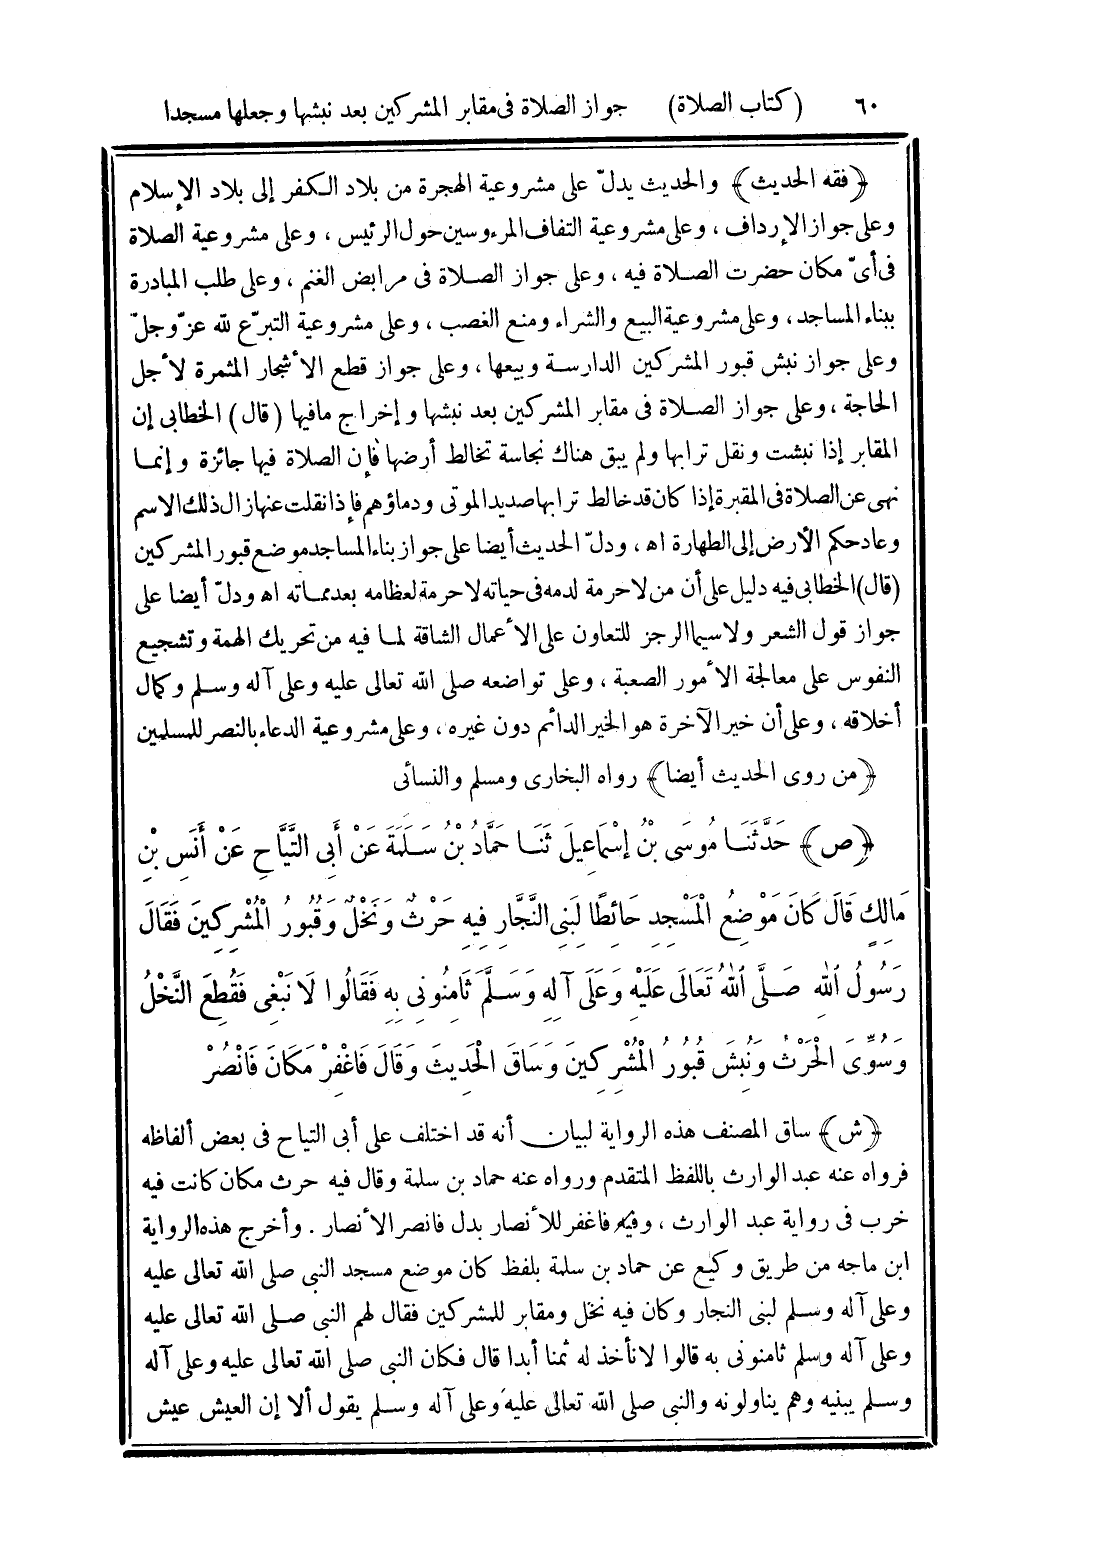 ٦٠ (كتاب الصلاة) جواز الصلاة فى مقابر المشركين بعد نبشها وجعلها مسجدا
﴿فقه الحديث﴾ والحديث يدلّ على مشروعية الهجرة من بلاد الكفر إلى بلاد الإسلام
وعلى جواز الإرداف ، وعلى مشروعية التفاف المرءوسين حول الرئيس ، وعلى مشروعية الصلاة
فى أىّ مكان حضرت الصلاة فيه ، وعلى جواز الصلاة فى مرابض الغنم ، وعلى طلب المبادرة
ببناء المساجد ، وعلى مشروعية البيع والشراء ومنع الغصب ، وعلى مشروعية التبرّع لله عزّ وجلّ
وعلى جواز نبش قبور المشركين الدارسة وبيعها ، وعلى جواز قطع الأشجار المثمرة لأجل
الحاجة ، وعلى جواز الصلاة فى مقابر المشركين بعد نبشها وإخراج مافيها (قال) الخطابى إن
المقابر إذا نبشت ونقل ترابها ولم يبق هناك نجاسة تخالط أرضها فإن الصلاة فيها جائزة وإنما
نهى عن الصلاة فى المقبرة إذا كان قد خالط ترابها صديد الموتى ودماؤهم فإذا نقلت عنها زال ذلك الاسم
وعاد حكم الأرض إلى الطهارة اه ، ودلّ الحديث أيضا على جواز بناء المساجد موضع قبور المشركين
(قال) الخطابى فيه دليل على أن من لا حرمة لدمه فى حياته لا حرمة لعظامه بعد مماته اه ودلّ أيضا على
جواز قول الشعر ولاسيما الرجز للتعاون على الأعمال الشاقة لما فيه من تحريك الهمة وتشجيع
النفوس على معالجة الأمور الصعبة ، وعلى تواضعه صلى الله تعالى عليه وعلى آله وسلم وكمال
أخلاقه ، وعلى أن خير الآخرة هو الخير الدائم دون غيره ، وعلى مشروعية الدعاء بالنصر للمسلمين
﴿من روى الحديث أيضا﴾ رواه البخارى ومسلم والنسائى
﴿ص﴾ حَدَّثَنَا مُوسَى بْنُ إِسْمَاعِيلَ ثَنَا حَمَّادُ بْنُ سَلَمَةَ عَنْ أَبِى التَّيَّاحِ عَنْ أَنَسِ بْنِ
مَالِكٍ قَالَ كَانَ مَوْضِعُ الْمَسْجِدِ حَائِطًا لِبَنِى النَّجَّارِ فِيهِ حَرْثٌ وَنَخْلٌ وَقُبُورُ الْمُشْرِكِينَ فَقَالَ
رَسُولُ اللهِ صَلَّى اللهُ تَعَالَى عَلَيْهِ وَعَلَى آلِهِ وَسَلَّمَ ثَامِنُونِى بِهِ فَقَالُوا لَا نَبْغِى فَقُطِعَ النَّخْلُ
وَسُوِّىَ الْحَرْثُ وَنُبِشَ قُبُورُ الْمُشْرِكِينَ وَسَاقَ الْحَدِيثَ وَقَالَ فَاغْفِرْ مَكَانَ فَانْصُرْ
﴿ش﴾ ساق المصنف هذه الرواية لبيان أنه قد اختلف على أبى التياح فى بعض ألفاظه
فرواه عنه عبد الوارث باللفظ المتقدم ورواه عنه حماد بن سلمة وقال فيه حرث مكان كانت فيه
خرب فى رواية عبد الوارث ، وفيه فاغفر للأنصار بدل فانصر الأنصار . وأخرج هذه الرواية
ابن ماجه من طريق وكيع عن حماد بن سلمة بلفظ كان موضع مسجد النبى صلى الله تعالى عليه
وعلى آله وسلم لبنى النجار وكان فيه نخل ومقابر للمشركين فقال لهم النبى صلى الله تعالى عليه
وعلى آله وسلم ثامنونى به قالوا لا نأخذ له ثمنا أبدا قال فكان النبى صلى الله تعالى عليه وعلى آله
وسلم يبنيه وهم يناولونه والنبى صلى الله تعالى عليه وعلى آله وسلم يقول ألا إن العيش عيش